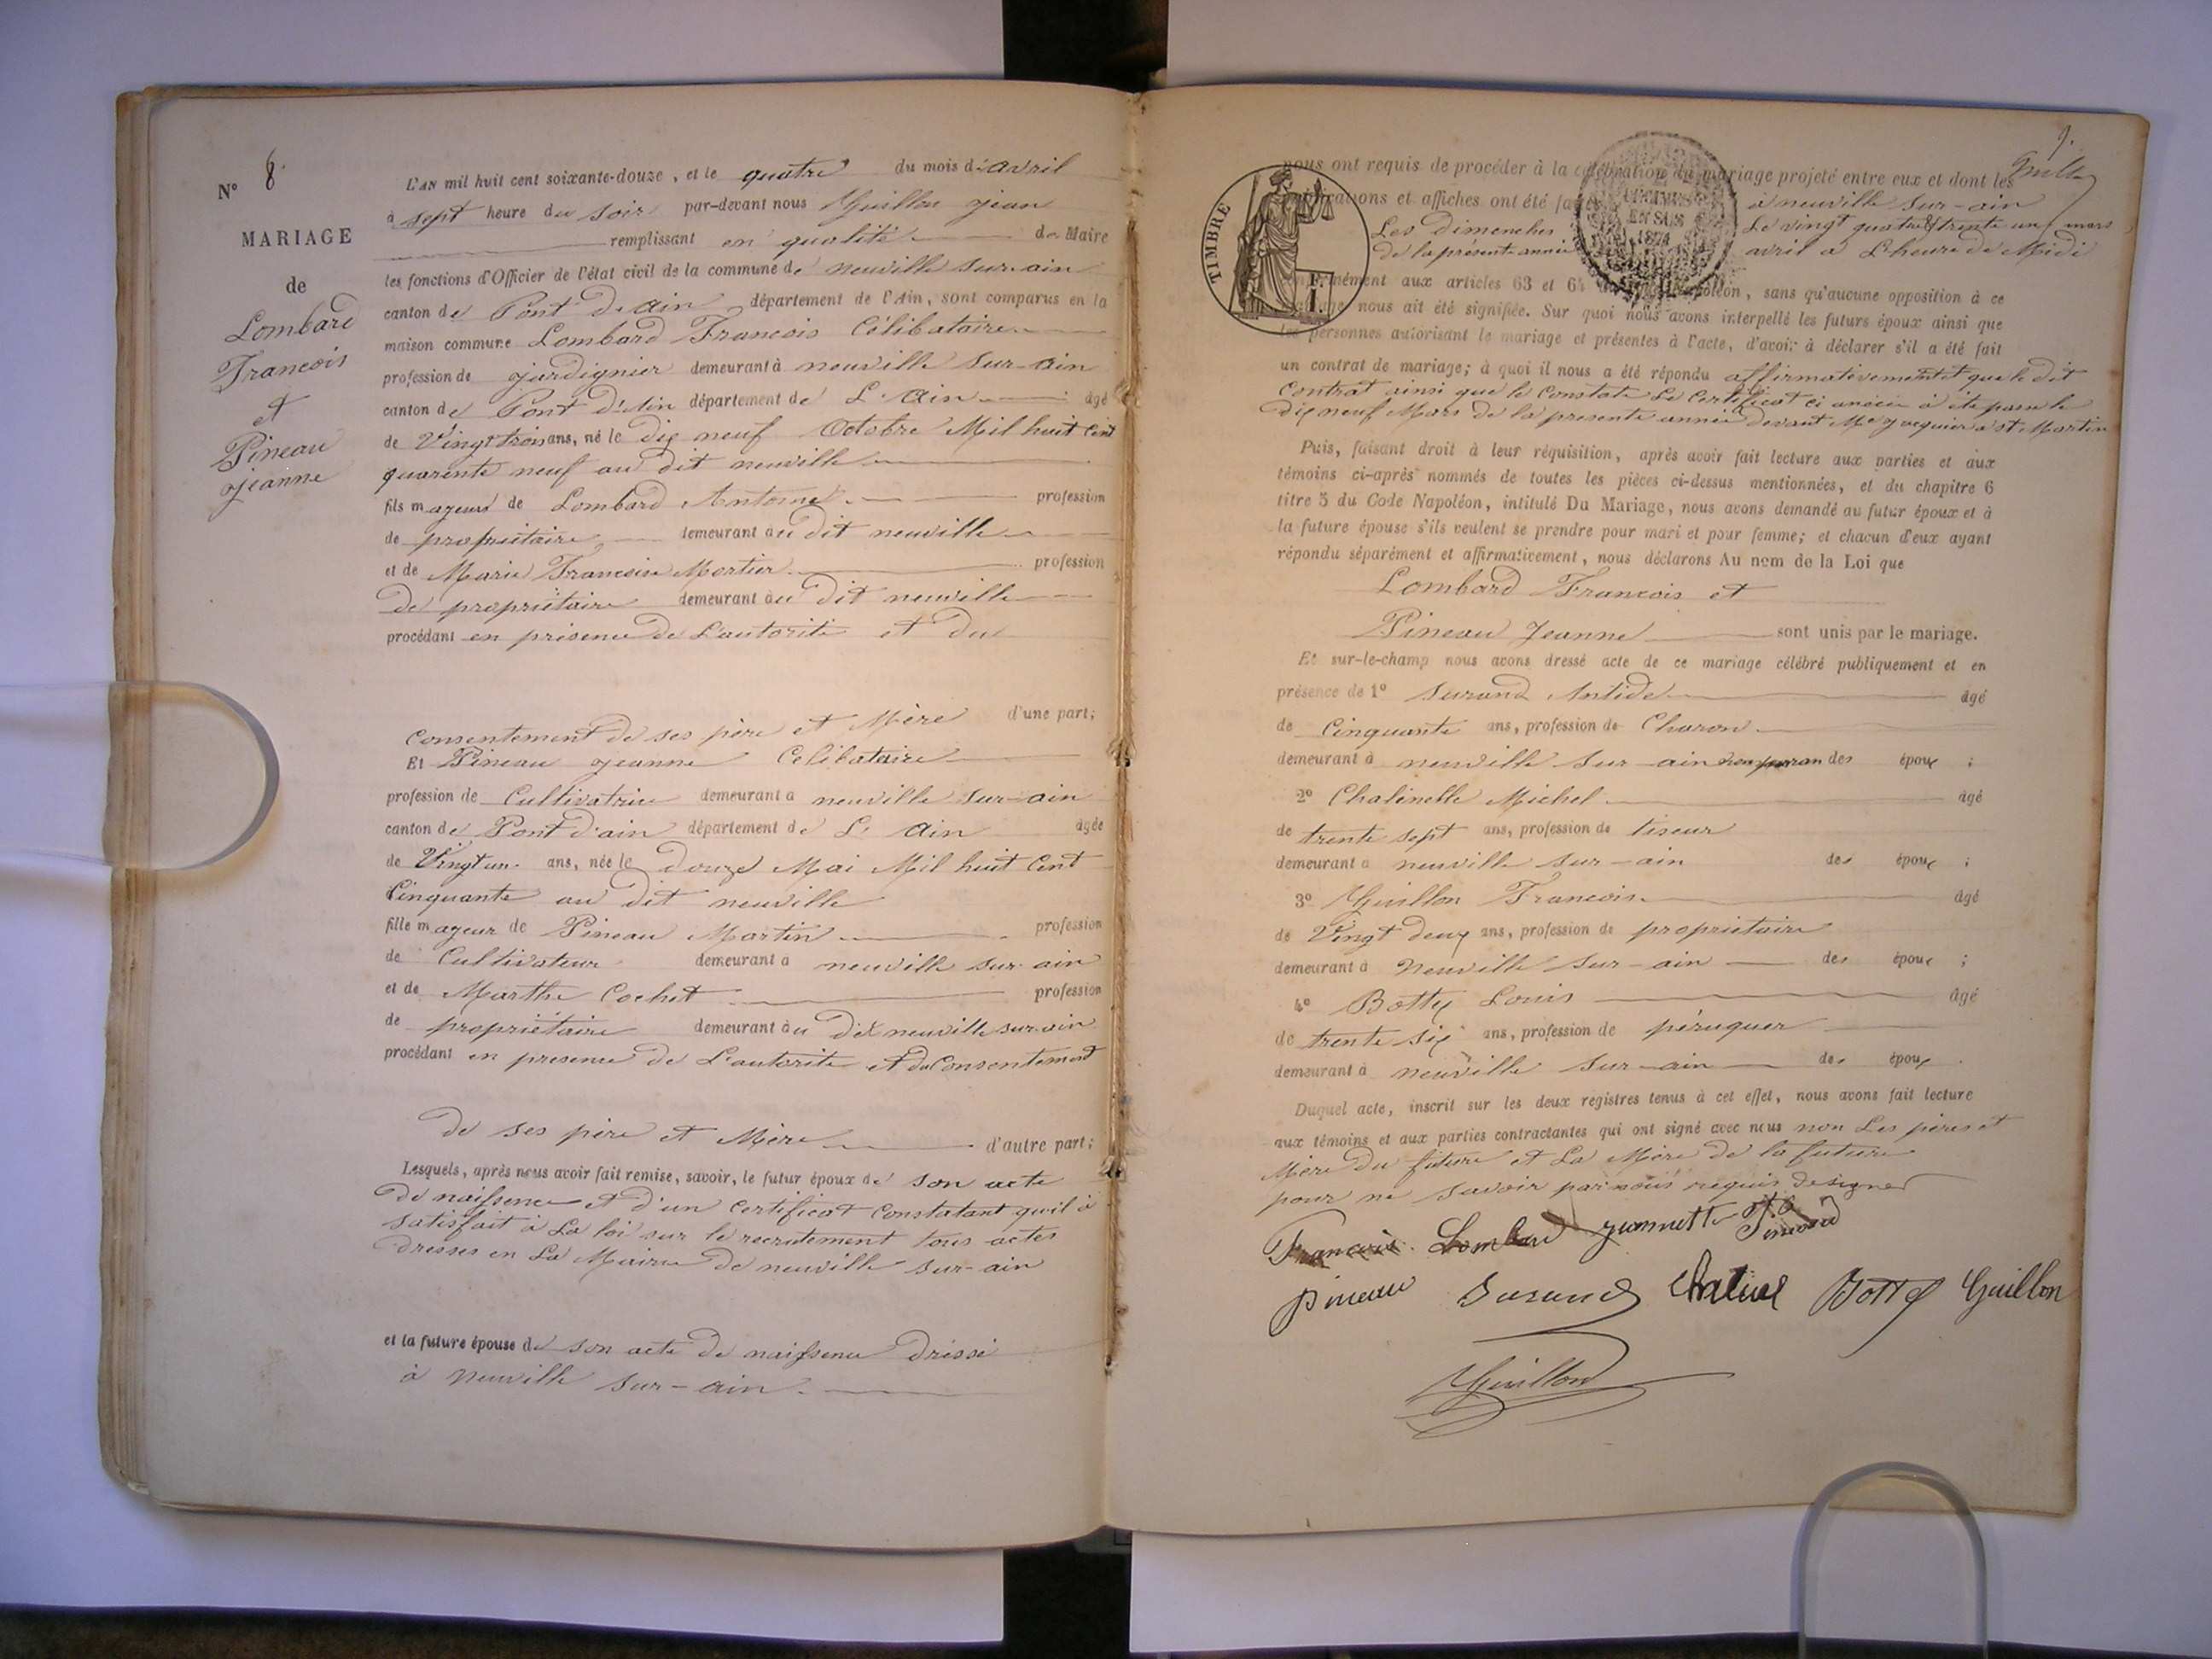 N° 8.
MARIAGE
de
Lombard
Francois
et
Pineau
jeanne
L'AN mil huit cent soixante-douze, et le quatre du mois d'avril
à sept heure du soir par-devant nous Guillon jean
remplissant en qualité de Maire
les fonctions d'Officier de l'état civil de la commune de neuville sur-ain
canton de Pont d'ain département de l'Ain, sont comparus en la
maison commune Lombard Francois Célibataire
profession de jardignier demeurant à neuville sur-ain
canton de Pont d'Ain département de L'Ain âgé
de Vingt trois ans, né le dix neuf Octobre Mil huit Cent
quarente neuf au dit neuville
fils mageur de Lombard Antoine profession
de propriétaire demeurant au dit neuville
et de Marie Francoise Mortier profession
de propriétaire demeurant au dit neuville
procédant en présence de L'autorité et du
consentement de ses père et Mère d'une part;
Et Pineau jeanne Célibataire
profession de Cultivatrice demeurant à neuville sur-ain
canton de Pont d'ain département de L'Ain âgée
de Vingt un ans, née le douze Mai Mil huit Cent
Cinquante au dit neuville
fille mageur de Pineau Martin profession
de Cultivateur demeurant à neuville sur-ain
et de Marthe Cochet profession
de propriétaire demeurant au dit neuville sur-ain
procédant en presence de L'autorité et du Consentement
de ses père et Mère d'autre part;
Lesquels, après nous avoir fait remise, savoir, le futur époux de son acte
de naissence et d'un certificat constatant qu'il à
satisfait à La loi sur le recrutement tous actes
dresses en La Mairie de neuville sur-ain
et la future épouse de son acte de naissence dressé
à neuville sur-ain.
9.
nous ont requis de procéder à la célébration du mariage projeté entre eux et dont les
publications et affiches ont été faites à neuville sur-ain
Les dimenches Le vingt quatre et trente un mars
de la présente année avril à L'heure de Midi
TIMBRE
F.
1.
conformément aux articles 63 et 64 du Code Napoléon, sans qu'aucune opposition à ce
mariage nous ait été signifiée. Sur quoi nous avons interpellé les futurs époux ainsi que
les personnes autorisant le mariage et présentes à l'acte, d'avoir à déclarer s'il a été fait
un contrat de mariage; à quoi il nous a été répondu affirmativement et que le dit
Contrat ainsi que le Constate Le Certificat ci anexé à été passé le
dix neuf Mars de la presente année devant Me jacquier à St Martin
Puis, faisant droit à leur réquisition, après avoir fait lecture aux parties et aux
témoins ci-après nommés de toutes les pièces ci-dessus mentionnées, et du chapitre 6
titre 5 du Code Napoléon, intitulé Du Mariage, nous avons demandé au futur époux et à
la future épouse s'ils veulent se prendre pour mari et pour femme; et chacun d'eux ayant
répondu séparément et affirmativement, nous déclarons Au nom de la Loi que
Lombard Francois et
Pineau Jeanne sont unis par le mariage.
Et sur-le-champ nous avons dressé acte de ce mariage célébré publiquement et en
présence de 1° Surand Antide âgé
de Cinquante ans, profession de Charon
demeurant à neuville sur-ain non parran des époux;
2° Chalinelle Michel âgé
de trente sept ans, profession de tiseur
demeurant à neuville sur-ain des époux;
3° Guillon Francois âgé
de Vingt deux ans, profession de propriétaire
demeurant à Neuville sur-ain des époux;
4° Botty Louis âgé
de trente six ans, profession de péruquer
demeurant à neuville sur-ain des époux.
Duquel acte, inscrit sur les deux registres tenus à cet effet, nous avons fait lecture
aux témoins et aux parties contractantes qui ont signé avec nous non Les pères et
Mère du future et La Mère de la future
pour ne savoir par nous requis de signer
Francois Lombard jeannette Pineau
Pineau Surand Botty Guillon
Guillon